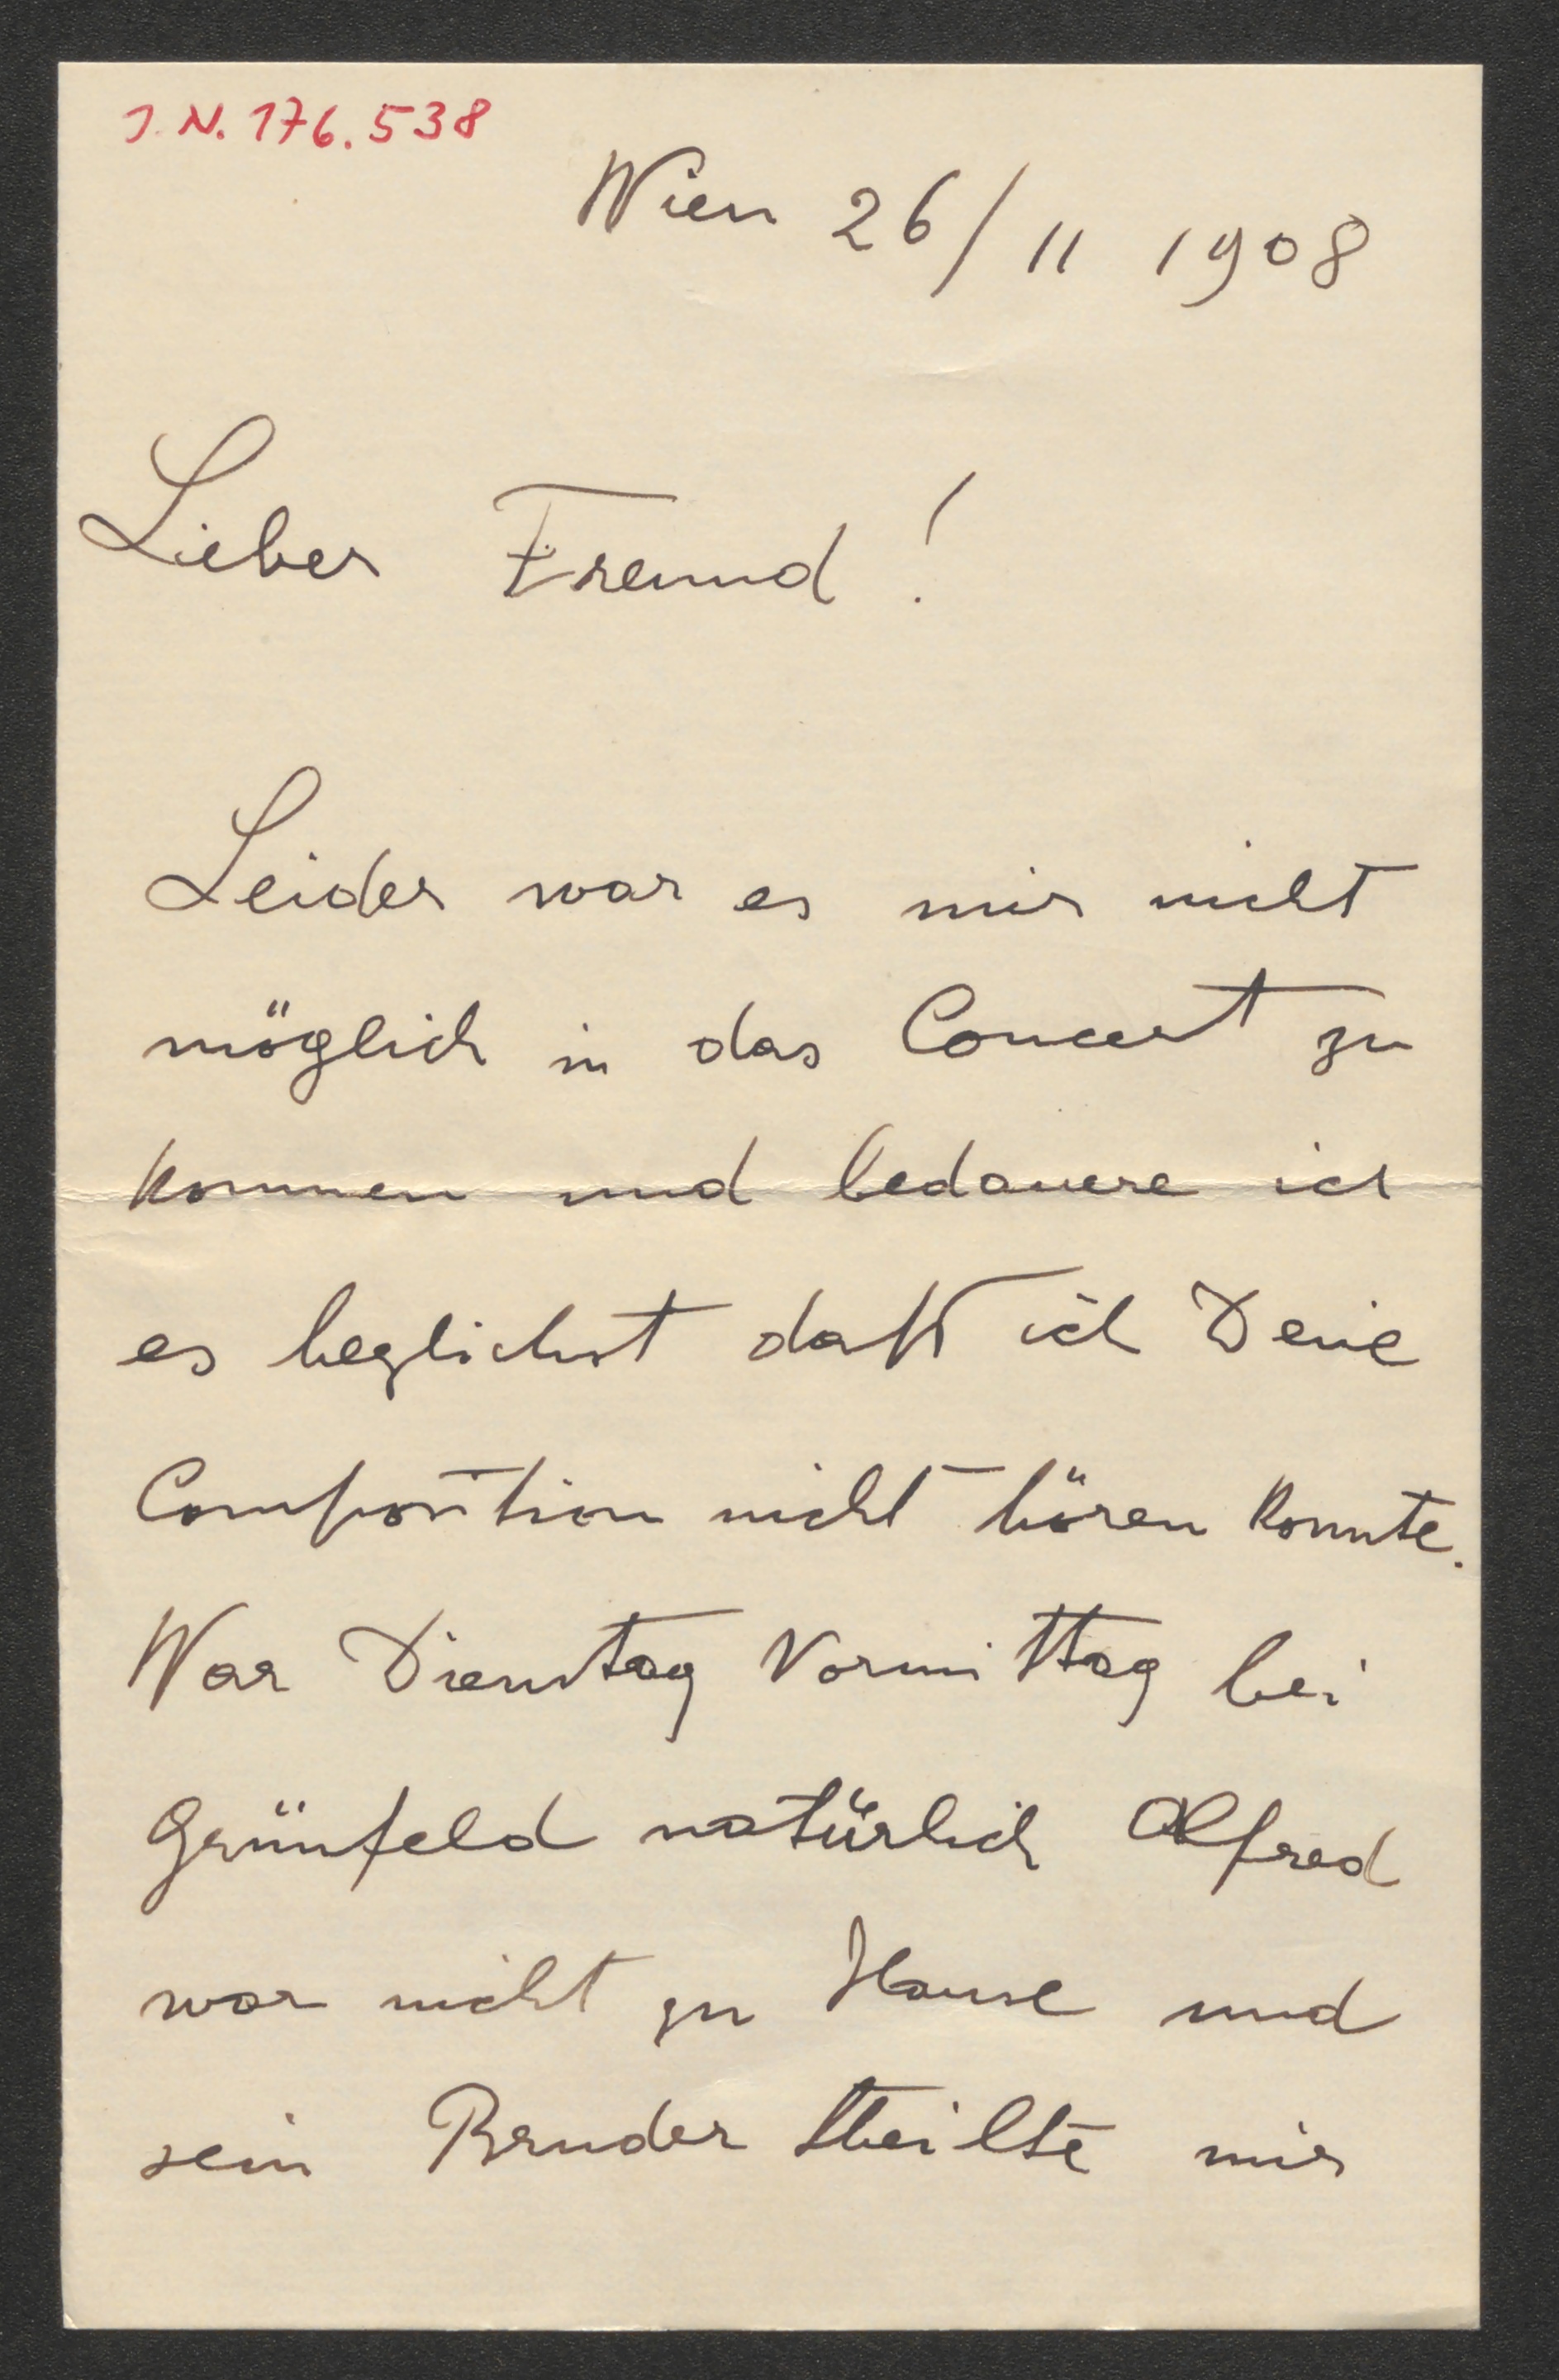 J.N. 176.538
Wien 26/11 1908
Lieber Freund!
Leider war es mir nicht
möglich in das Concert zu
kommen und bedauere ich
es herzlichst daß ich Deine
Composition nicht hören konnte.
War Dienstag Vormittag bei
Grünfeld natürlich Alfred
war nicht zu Hause und
sein Bruder theilte mir